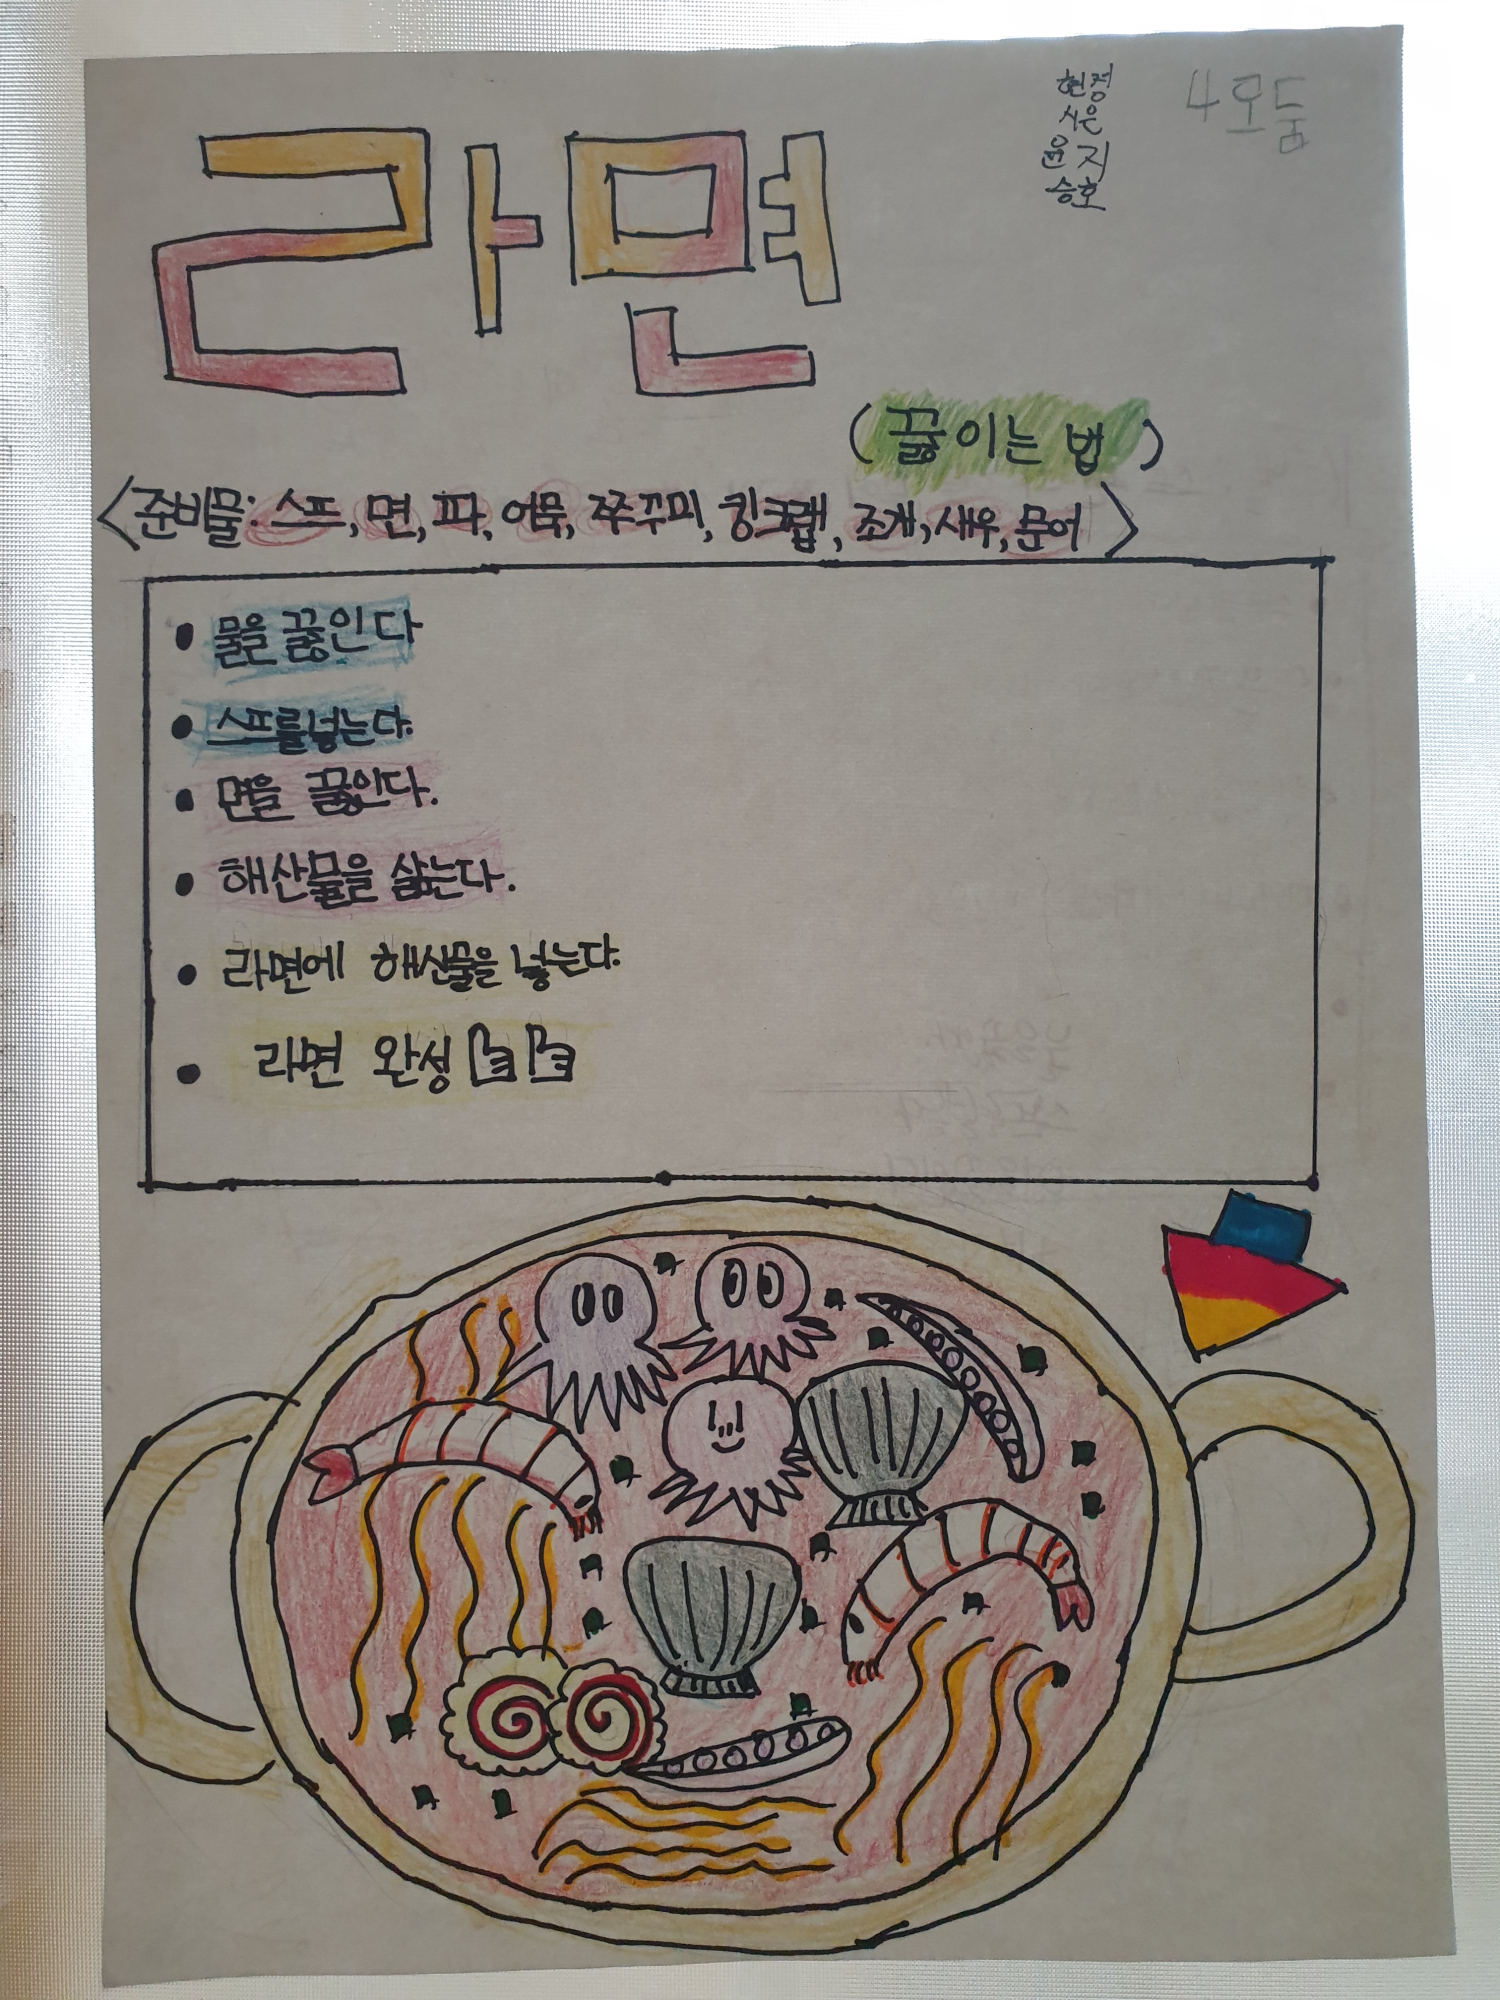 4모둠
현정
시은
윤지
승호
라면
(끓이는 법)
<준비물: 스프, 면, 파, 어묵, 쭈꾸미, 킹크랩, 조개, 새우, 문어>
• 물을 끓인다
• 스프를 넣는다.
• 면을 끓인다.
• 해산물을 삶는다.
• 라면에 해산물을 넣는다.
• 라면 완성